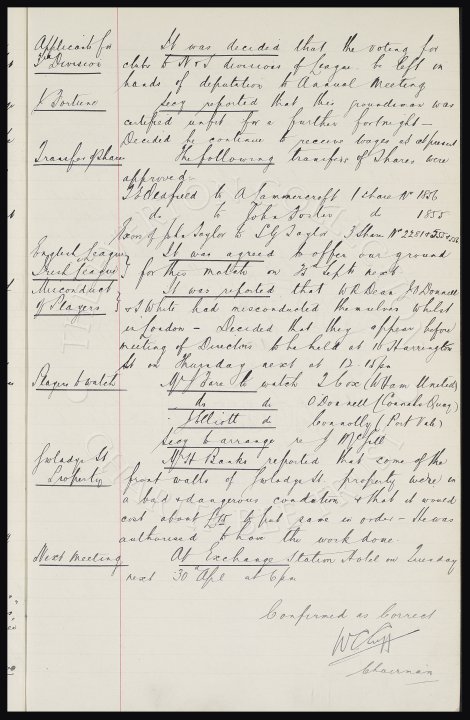 Applicants for It was decided that the voting for
3rd Division clubs to N & S divisions of League be left in
hands of deputation to Annual Meeting
J Fortune Secy reported that this groundsman was
certified unfit for a further fortnight -
Decided he continue to receive wages as at present
Transfer of Shares The following transfers of Shares were
approved -
to A Hammercroft 1 share No 1856
do to John Foster do 1855
Exors of John Taylor to Taylor 3 Share No
English League It was agreed to offer our ground
Irish League for this match on Sept next
Misconduct It was reported that W R Dean J O'Donnell
of Players & T White had misconducted themselves whilst
in London - Decided that they appear before
meeting of Directors to be held at Harrington
St on Thursday next at 12-15pm
Players to watch Mr J Fare to watch T Cox (W Ham United)
do do O Donnell (Connahs Quay)
J Elliott do Connolly (Port Vale)
Secy to arrange re J McGill
Gwladys St Mr H Banks reported that some of the
Property front walls of Gwladys St property were in
a bad & dangerous condition & that it would
cost about to put same in order - He was
authorised to have the work done.
Next Meeting At Exchange Station Hotel on Tuesday
next 30th Apl at 6pm
Confirmed as Correct
W C Cuff
Chairman